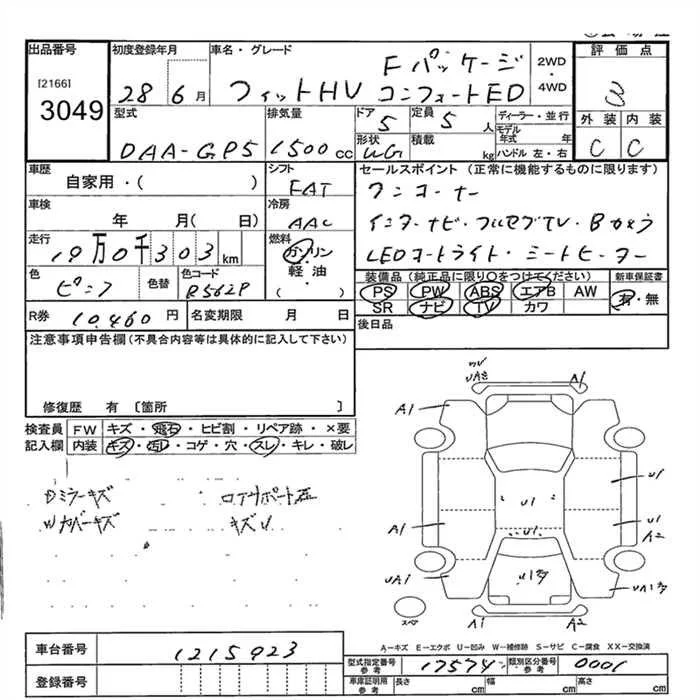 出品番号
[2166]
3049
初度登録年月
28 6月
車名・グレード
Fパッケージ
フィットHV コンフォートED
2WD
・
4WD
評価点
3
外装 内装
C C
型式
DAA-GP5
排気量
1500cc
ドア
5
定員
5人
形状
WG
積載
kg
ディーラー・並行
モデル年式 年
ハンドル 左・右
車歴
自家用・( )
シフト
FAT
セールスポイント (正常に機能するものに限ります)
ワンオーナー
インターナビ・フルセグTV・Bカメラ
LEDオートライト・シートヒーター
車検
年 月( 日)
冷房
AAC
走行
19万0千303km
燃料
ガソリン
・
軽油
( )
色
ピンク
色替
色コード
R562P
装備品 (純正品に限り○をつけてください)
PS PW ABS エアB AW
SR ナビ TV カワ
新車保証書
有・無
R券 10,460円
名変期限 月 日
後日品
注意事項申告欄(不具合内容等は具体的に記入して下さい)
修復歴 有 〔箇所 〕
検査員記入欄
FW キズ・飛石・ヒビ割・リペア跡・×要
内装 キズ・汚レ・コゲ・穴・スレ・キレ・破レ
Dミラーキズ
Wカバーキズ
ロアサポート歪
キズU
A1
A1
U1
U1
U1
U1
A2
A1
UA1
A1
A2
スペア
A-キズ E-エクボ U-凹み W-補修跡 S-サビ C-腐食 XX-交換済
車台番号
1215923
登録番号
型式指定番号 参考
17574
類別区分番号 参考
0001
車庫証明用 参考
長さ cm 幅 cm 高さ cm